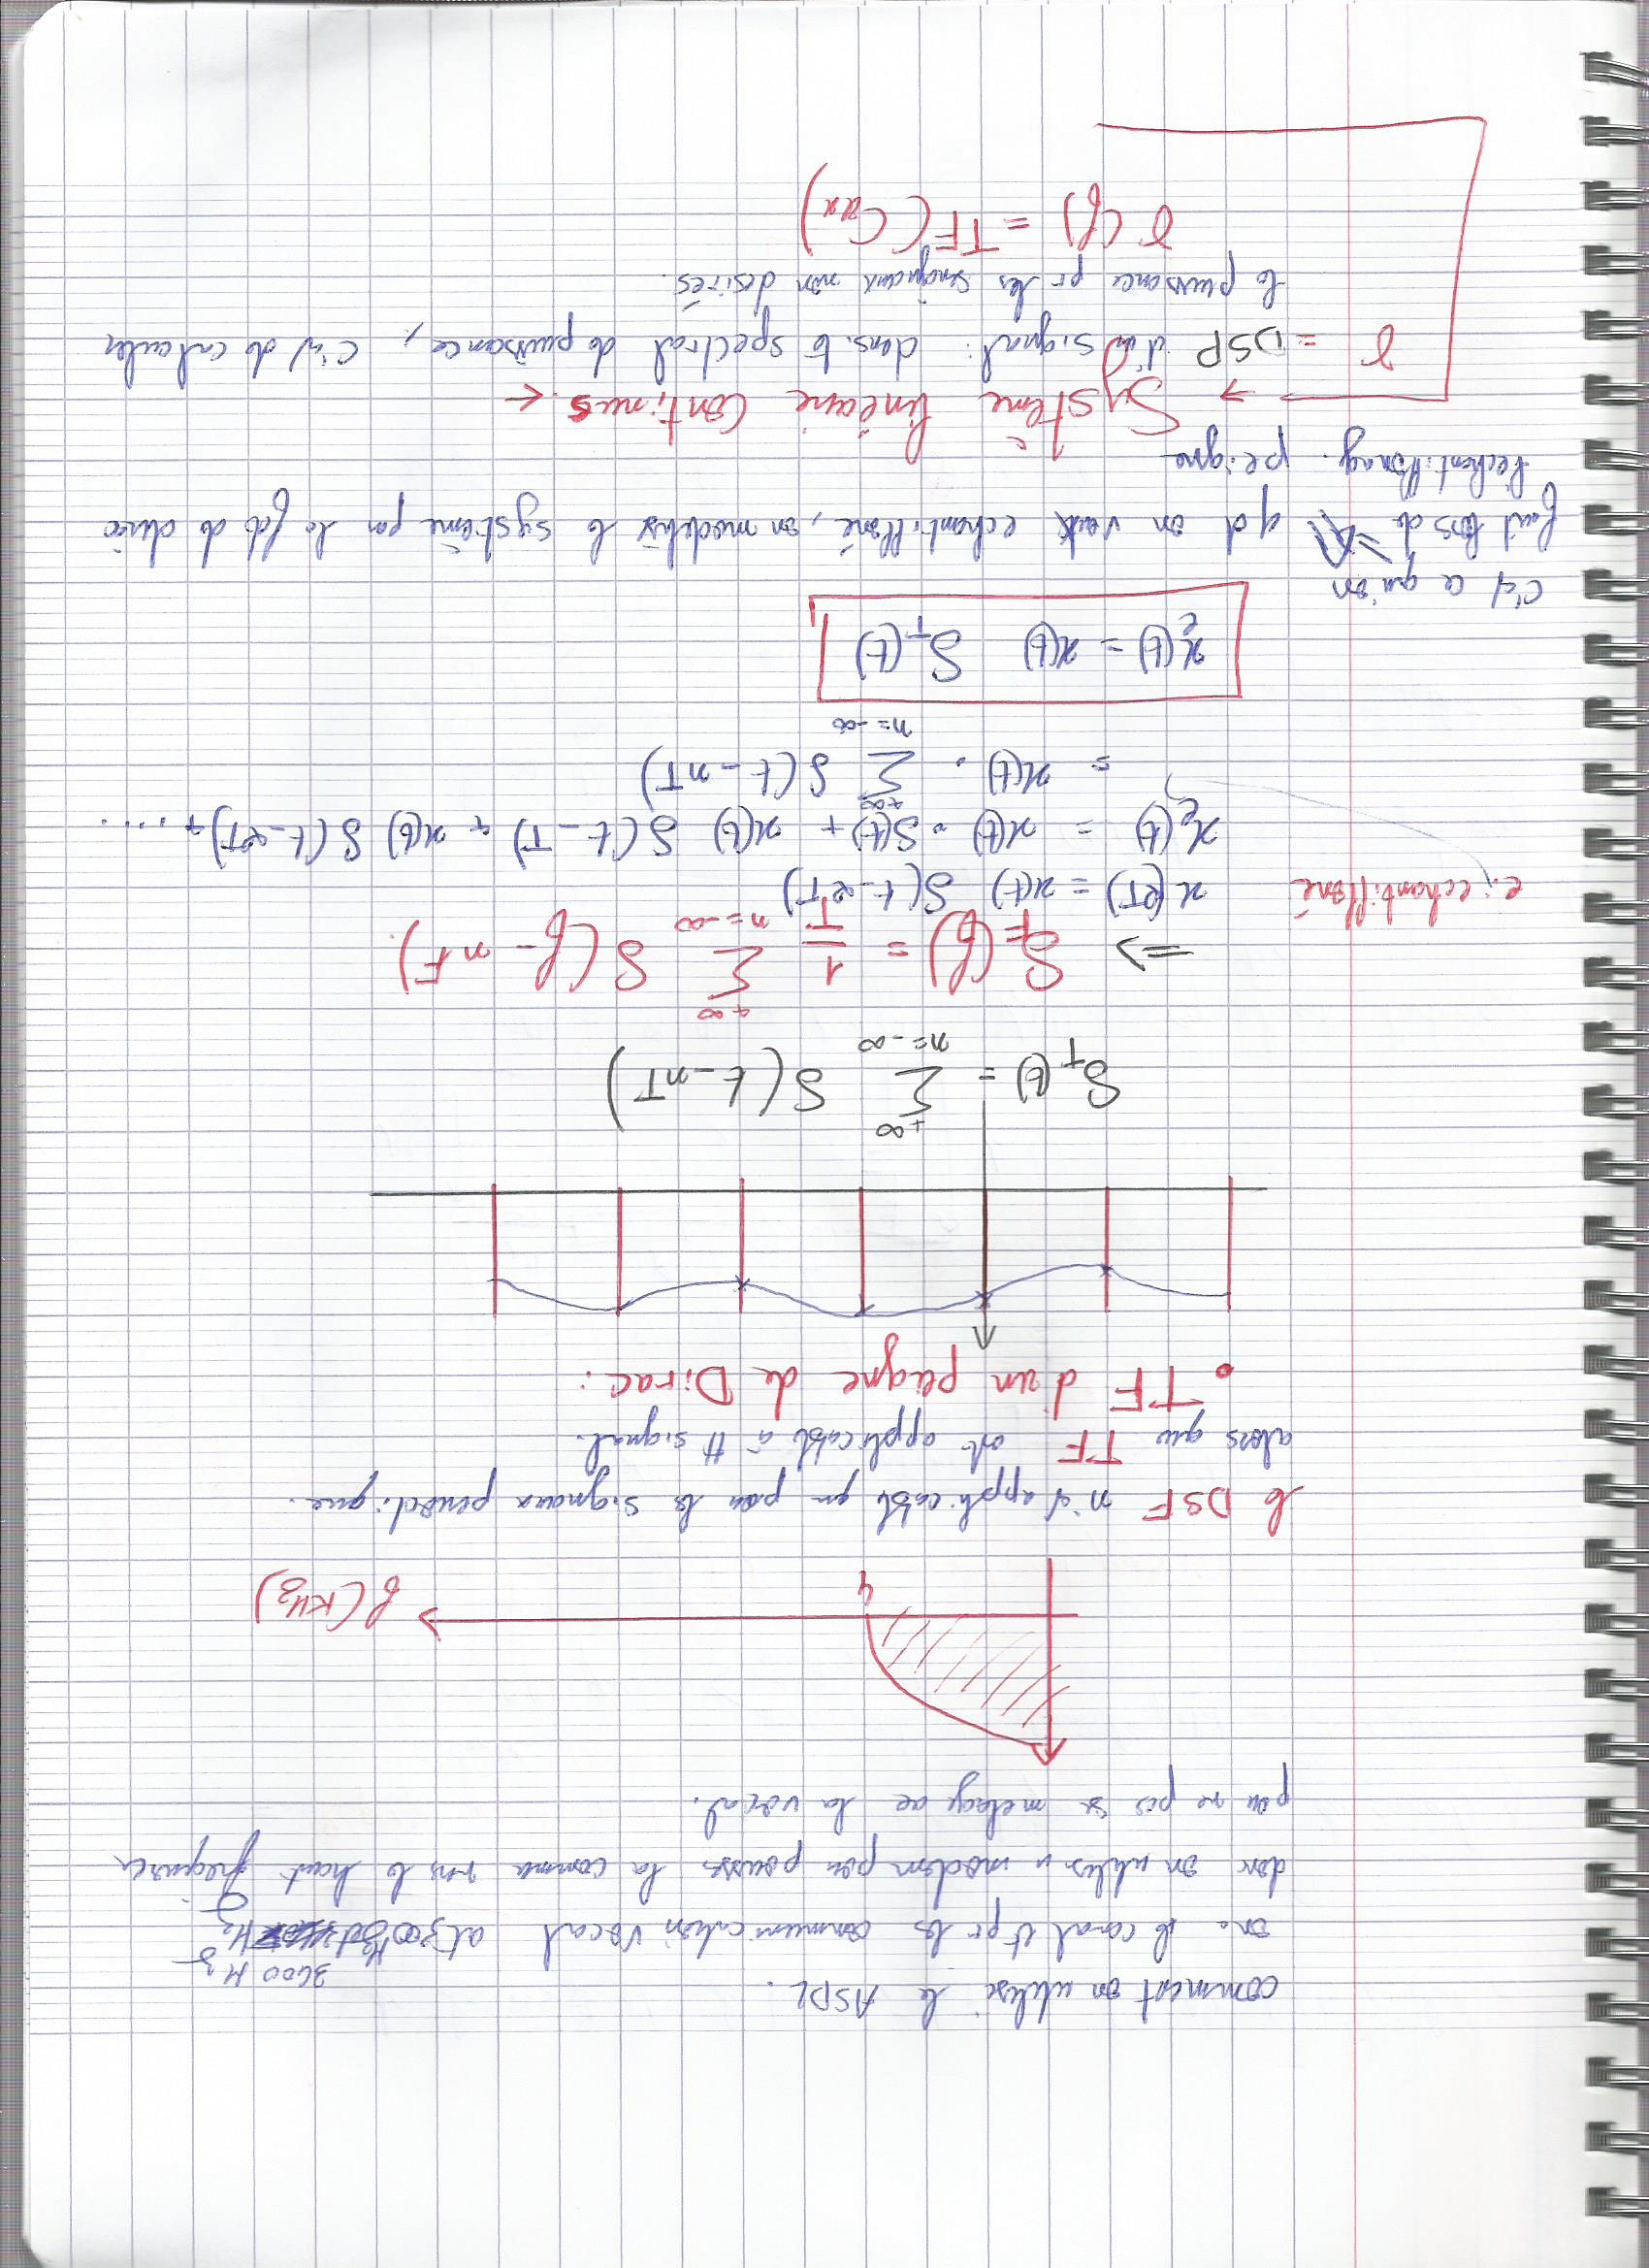 comment on utilise le ASDL.
on a le canal U pr les communication Vocal at 300Hz 3600 Hz
donc on utilise u modem pou pousse la comma vers le haut frequence
pou ne pas se melange ac la vocal.
4 f(KHz)
le DSF n'st applicabl que pou les signaux periodique.
alors que TF est applicabl à tt signal.
• TF d'un peigne de Dirac :
δT(t) = +∞ Σ n=-∞ δ(t-nT)
=> δF(f) = 1/T +∞ Σ n=-∞ δ(f-nF).
x(kT) = x(t) δ(t-kT)
e: echantilloné
xe(t) = x(t) . δ(t) + x(t) δ(t-T) + x(t) δ(t-2T) + .....
= x(t) . +∞ Σ n=-∞ δ(t-nT)
xe(t) = x(t) δT(t)
c'st ce qu'on
fait lors de => qd on veut echantilloné, on modelise le système par la fct de dirac
l'echantillonag. peigne
→ Système linéaire Continus. ←
γ = DSP d'un signal: dens. te spectral de puissance, c'st de calculer
la puissance pr les singnaux non desirés.
γ(f) = TF(Cxx)